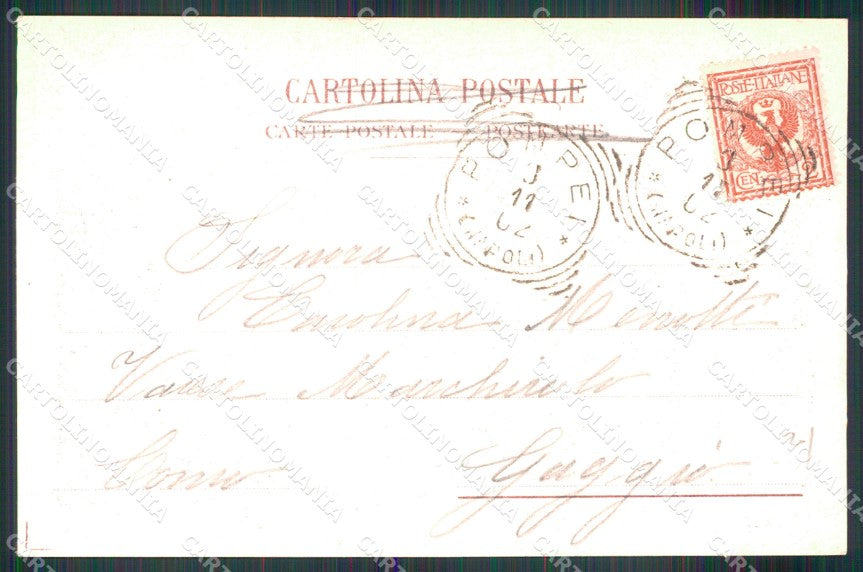 CARTOLINA POSTALE
CARTE POSTALE POSTKARTE
POSTE·ITALIANE
CEN. 2
POMPEI
3
11
02
* (NAPOLI) *
POMPEI
3
11
02
* (NAPOLI) *
Signora
Carolina Menotti
Varese Marchirolo
Como Gaggio
CARTOLINOMANIA